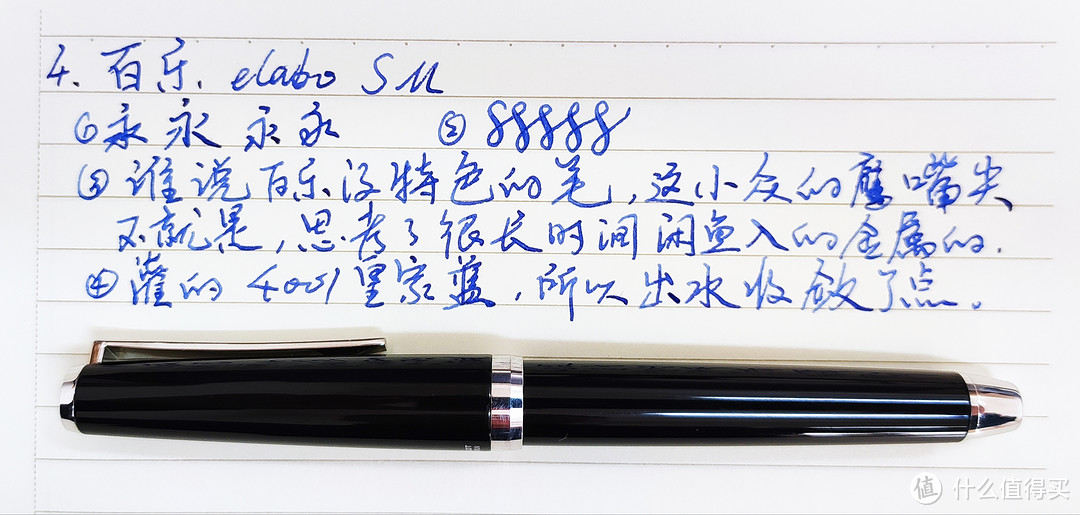 4. 百乐. elabo SM
①永 永 永 永 ② 8 8 8 8 8
③ 谁说百乐没特色的笔,这小众的鹰嘴尖
不就是,思考了很长时间闲鱼入的金属的.
④ 灌的 4001 皇家蓝,所以出水收敛了点。
值 什么值得买